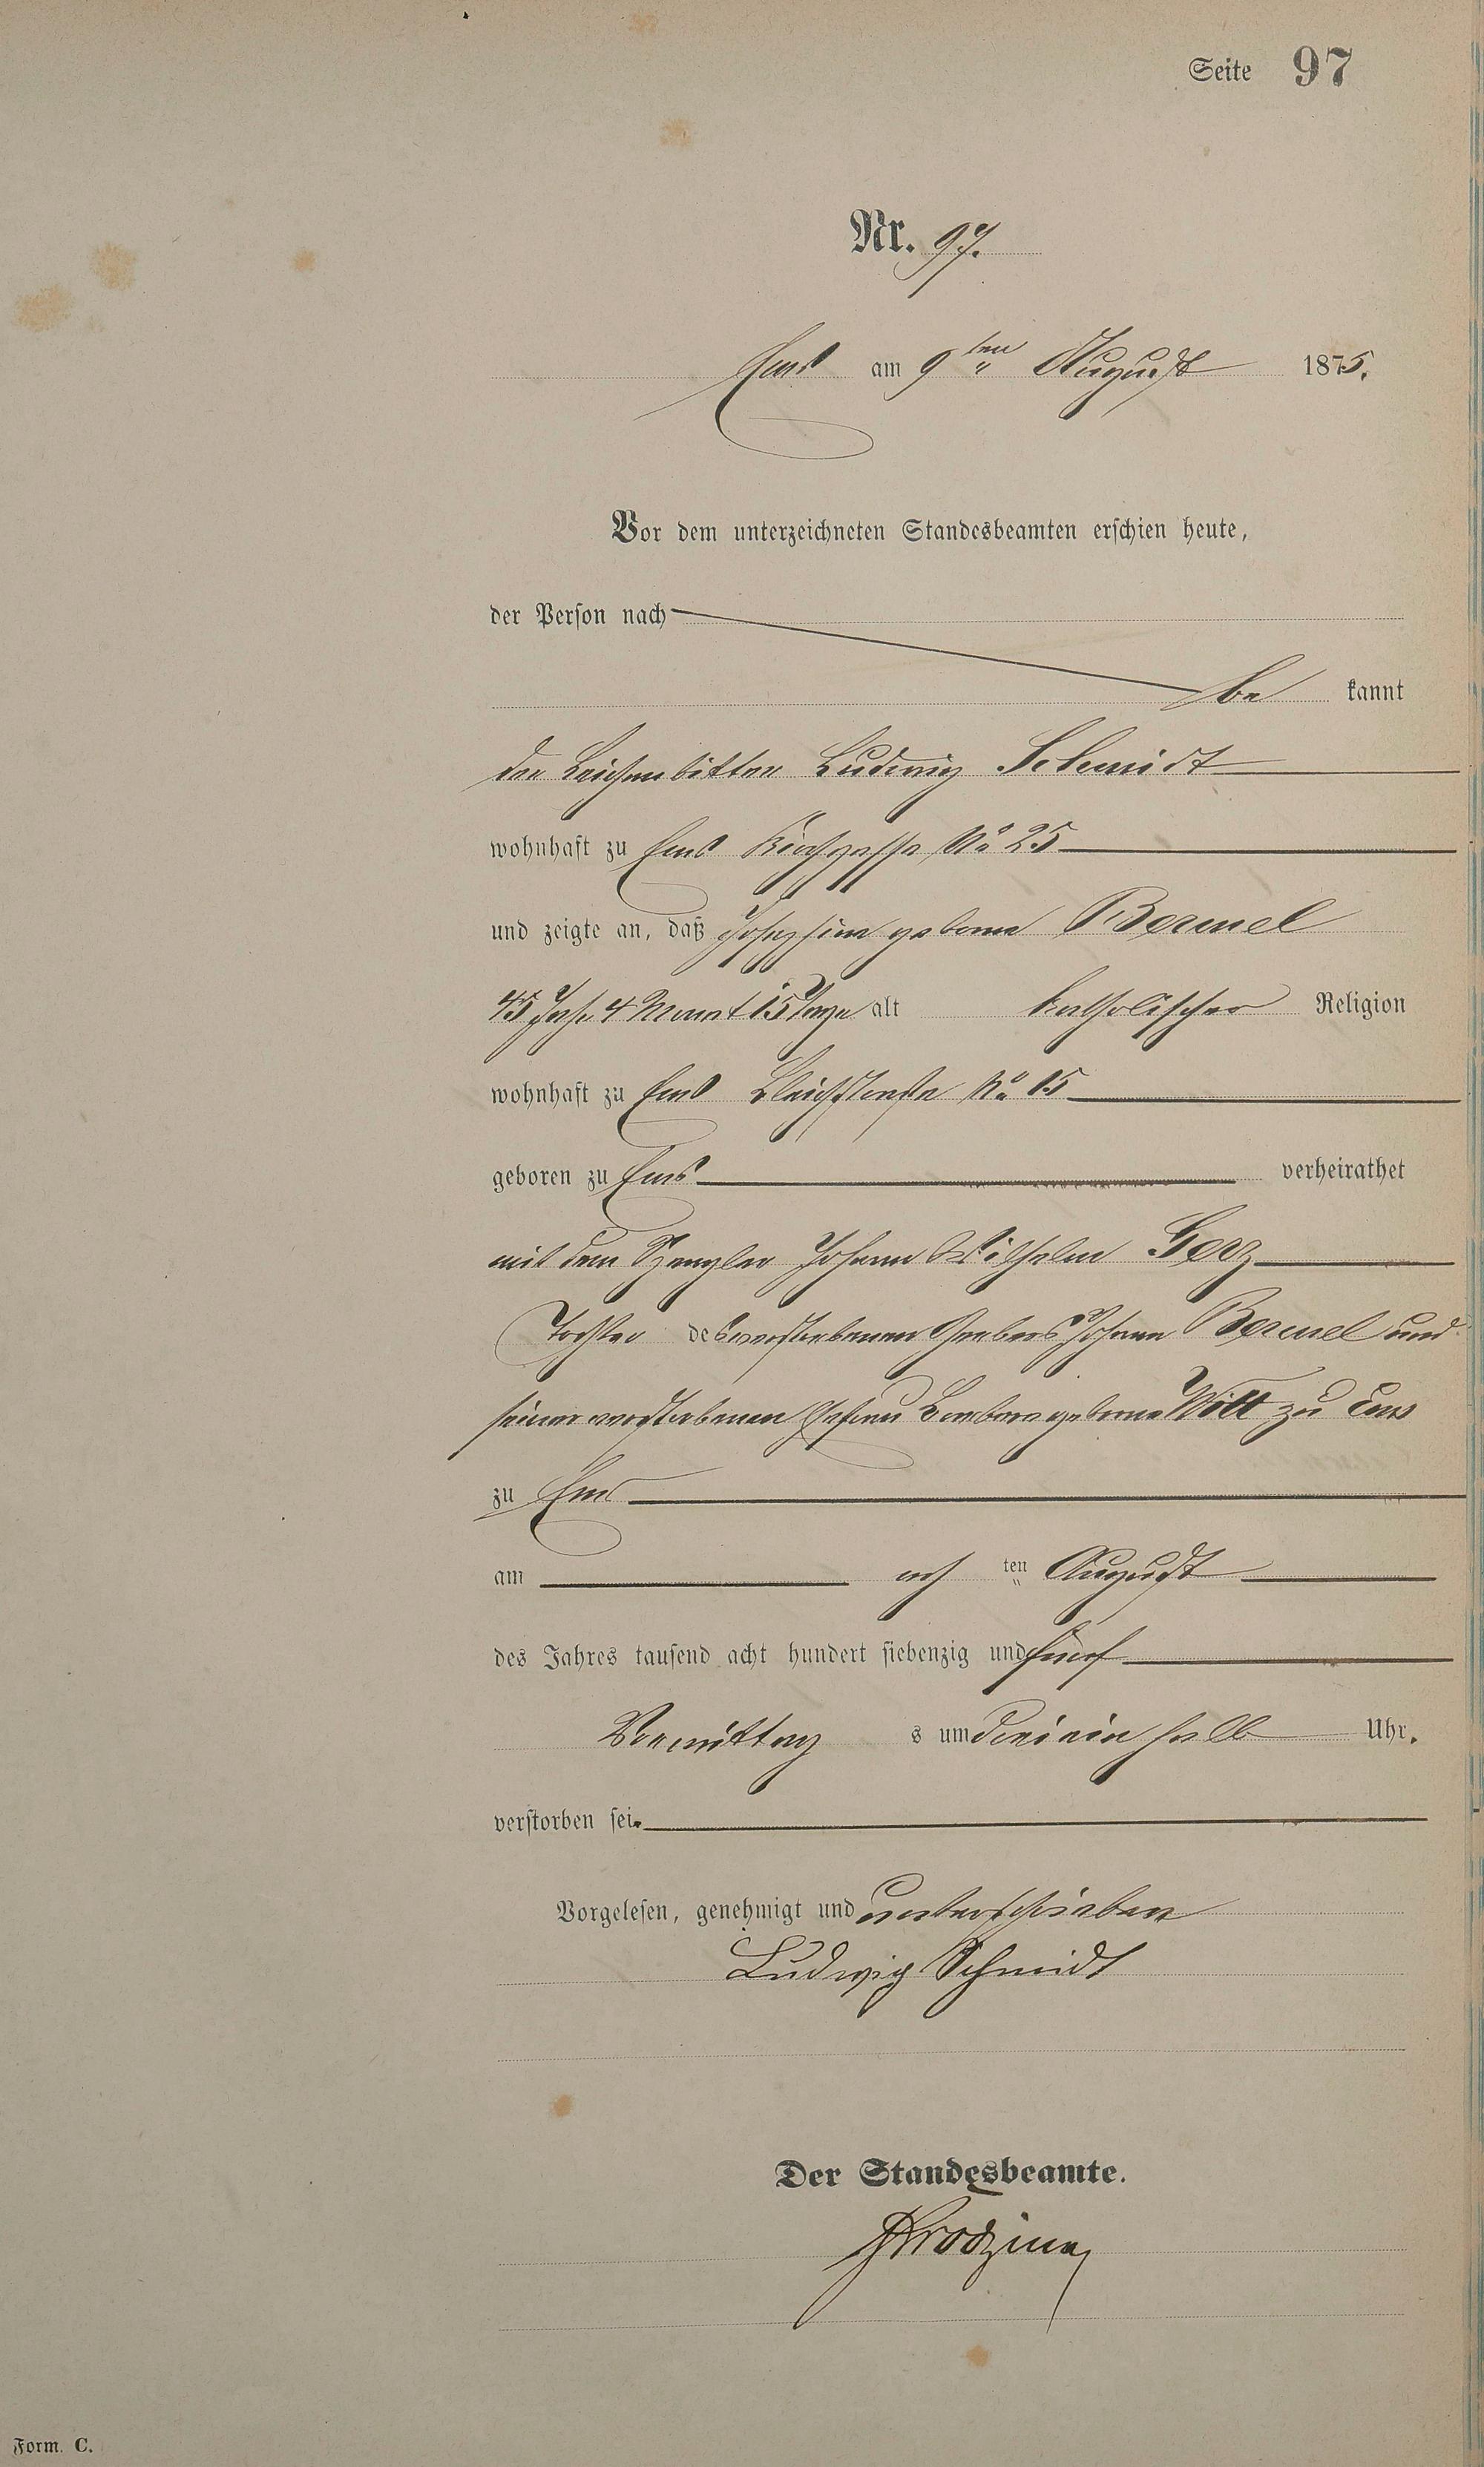 Seite 97
Nr. 97.
Ems am 9ten August 1875.
Vor dem unterzeichneten Standesbeamten erschien heute,
der Person nach
be kannt
der Leichenbitter Ludwig Schmidt
wohnhaft zu Ems Kirchgasse No 25
und zeigte an, daß Josephine geborne Bermel
45 Jahr 4 Monat 15 Tage alt katholischer Religion
wohnhaft zu Ems Bleichstraße No 15
geboren zu Ems verheirathet
mit dem Spengler Johann Wilhelm Gerz
Tochter des verstorbenen Johann Bermel und
seiner verstorbenen Ehefrau Barbara geborne Witt zu Ems
zu Ems
am ten August
des Jahres tausend acht hundert siebenzig und fünf
Vormittag s um drei ein halb Uhr.
verstorben sei.
Vorgelesen, genehmigt und unterschrieben
Ludwig Schmidt
Der Standesbeamte.
Form. C.